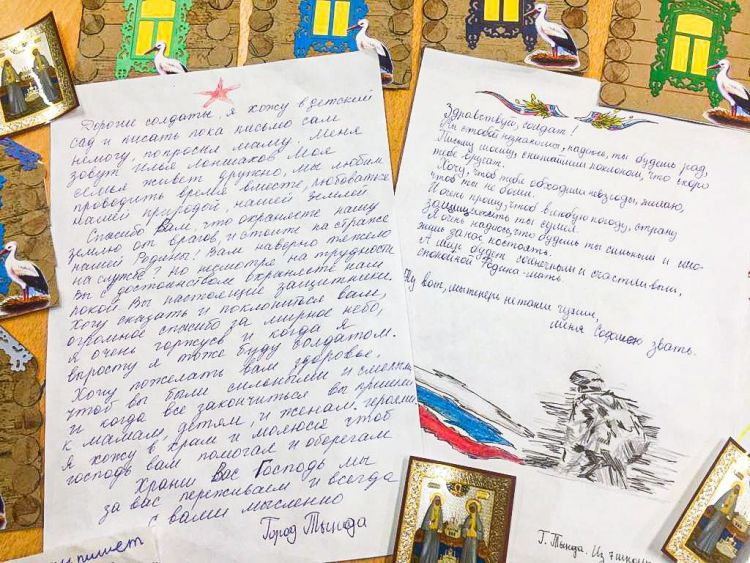 Дорогие солдаты, я хожу в детский
сад и писать пока письмо сам
немогу, попросил маму. Меня
зовут Илья Лоншаков Моя
семья живет дружно, мы любим
проводить время вместе, любоваться
нашей природой, нашей Землей
Спасибо Вам, что охраняете нашу
землю от врагов, и стоите на страже
нашей Родины! Вам наверно тяжело
на службе? но несмотря на трудности
Вы с достоинством охраняете наш
покой Вы настоящие защитники.
Хочу сказать и поклониться вам,
огромное спасибо за мирное небо,
я очень горжусь и когда я
вырасту я тоже буду солдатом.
Хочу пожелать вам здоровье,
чтоб вы были сильными и смелыми
и когда все закончиться вы пришли
к мамам, детям, и женам. героями
Я хожу в храм и молюсь чтоб
господь вам помогал и оберегал
Храни Вас Господь мы
за вас переживаем и всегда
с вами мысленно
Город Тында
пишет
Здравствуй, солдат!
Мы с тобой незнакомы, надеюсь, ты будешь рад,
Письму моему с нижайшим поклоном, что скоро
тебе вручат.
Хочу, чтоб тебя обходили невзгоды, желаю,
чтоб ты не болел.
И очень прошу, чтоб в любую погоду, страну
защитить ты сумел.
Я очень надеюсь, что будешь ты сильным и
жизнь за нас постоять.
А мир будет солнечным и счастливым,
спокойной Родина-мать.
Ну вот, мы теперь не такие чужие,
меня звать.
Г. Тында. Из 7 школы